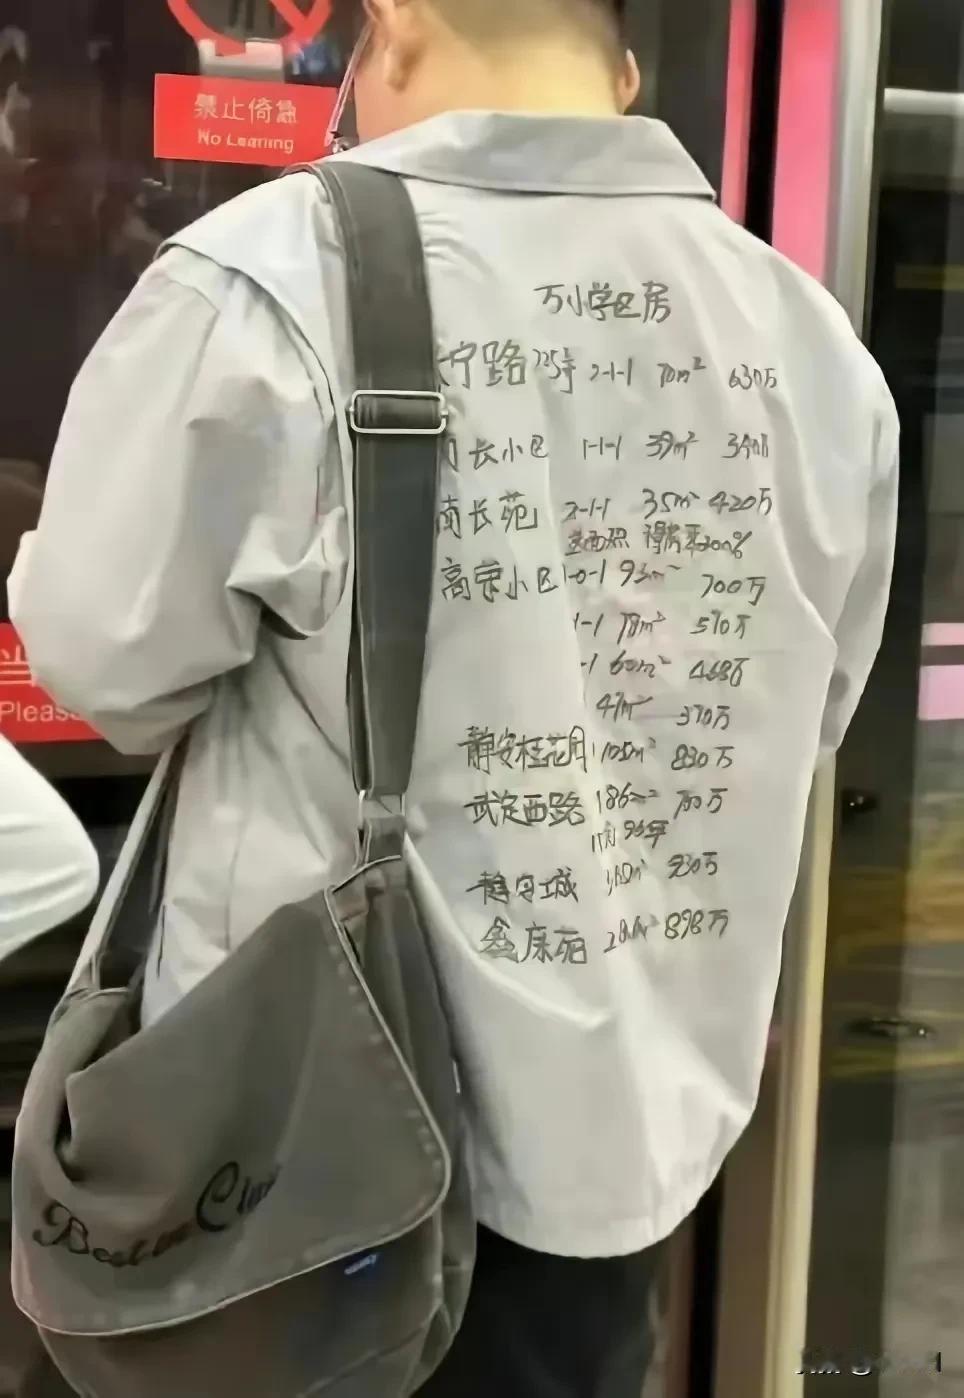 禁止倚靠
No Leaning
万小学区房
长宁路 725号 2-1-1 70m² 630万
长小区 1-1-1 39m²
南长苑 2-1-1 35m² 420万
面积 得房率200%
高荣小区 1-0-1 93m² 700万
1-1 78m² 570万
-1 60m² 468万
47m² 370万
静安桂花园 105m² 830万
武定西路 186m² 700万
静安城 930万
鑫康苑 898万
Please
Best in Class